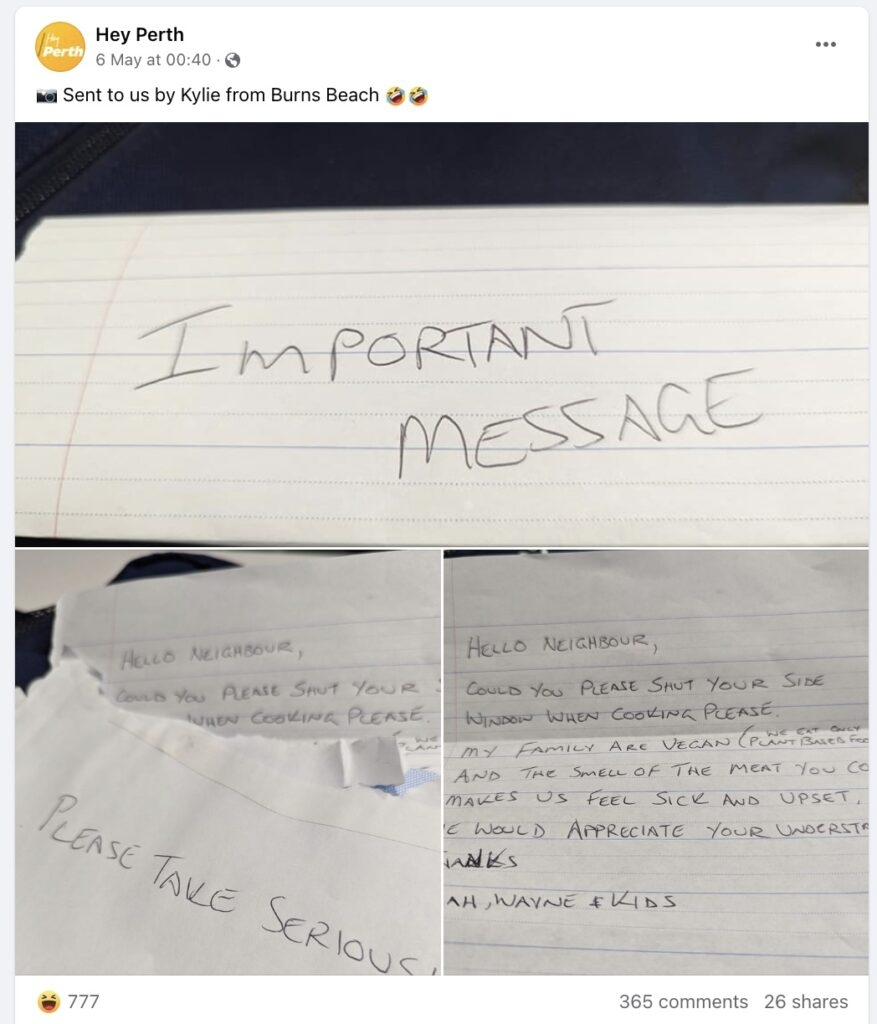 Hey Perth
Hey Perth
6 May at 00:40 ·
Sent to us by Kylie from Burns Beach 🤣🤣
IMPORTANT
MESSAGE
HELLO NEIGHBOUR,
COULD YOU PLEASE SHUT YOUR
WHEN COOKING PLEASE.
PLEASE TAKE SERIOUS
HELLO NEIGHBOUR,
COULD YOU PLEASE SHUT YOUR SIDE
WINDOW WHEN COOKING PLEASE.
MY FAMILY ARE VEGAN (WE EAT ONLY
PLANT BASED FOO
AND THE SMELL OF THE MEAT YOU CO
MAKES US FEEL SICK AND UPSET,
E WOULD APPRECIATE YOUR UNDERSTA
ANKS
AH, WAYNE & KIDS
777
365 comments 26 shares